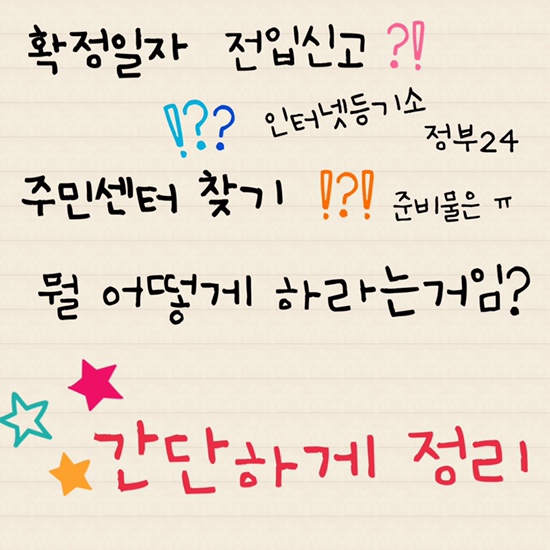 확정일자 전입신고 ?!
!?? 인터넷등기소
정부24
주민센터 찾기 !?! 준비물은 ㅠ
뭘 어떻게 하라는거임?
간단하게 정리